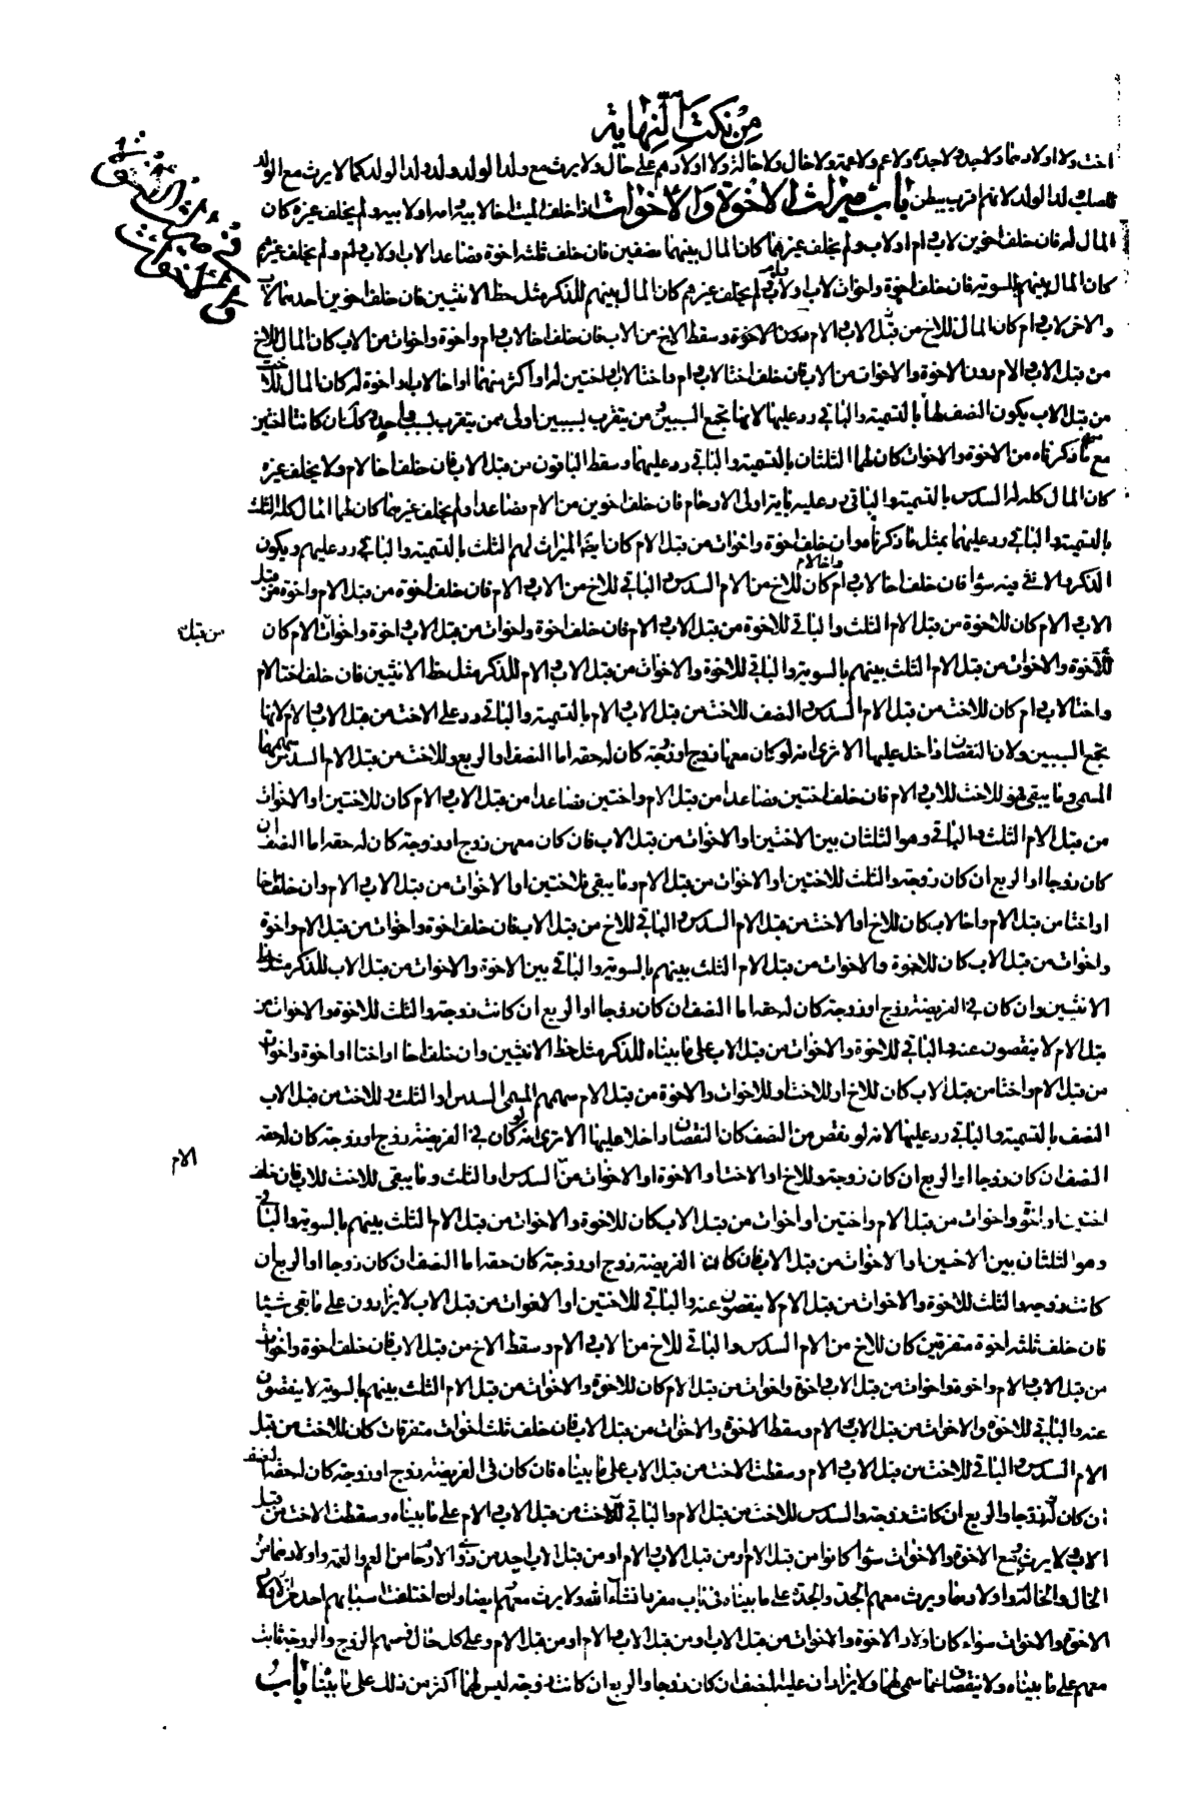 من نكت النهاية
اخت ولا اولادهما ولا جد ولا جدة ولا عم ولا عمة ولا خال ولا خالة ولا اولادهم على حال ولا يرث مع ولد الولد ولد ولد الولد كما لا يرث مع الولد
للصلب ولد الولد لانهم اقرب ببطن باب ميراث الاخوة والاخوات اذا خلف الميت اخا لابيه وامه او لابيه ولم يخلف غيره كان
المال له فان خلف اخوين لاب وام او لاب ولم يخلف غيرهما كان المال بينهما نصفين فان خلف ثلثة اخوة فصاعدا لاب او لاب وام ولم يخلف غيرهم
كان المال بينهم بالسوية فان خلف اخوة واخوات لاب او لاب وام ولم يخلف غيرهم كان المال بينهم للذكر مثل حظ الانثيين فان خلف اخوين احدهما لاب
والاخر لاب وام كان المال للاخ من قبل الاب والام دون الاخوة وسقط الاخ من الاب فان خلف اخا لاب وام واخوة واخوات من الاب كان المال للاخ
من قبل الاب والام دون الاخوة والاخوات من الاب فان خلف اختا لاب وام واختا لاب او اختين له او اكثر منهما او اخا لاب او اخوة له كان المال للاخت
من قبل الاب يكون النصف لها بالتسمية والباقي رد عليها لانها تجمع السببين ومن يتقرب بسببين اولى ممن يتقرب بسبب واحد وكذلك ان كانتا اختين
مع من ذكرناه من الاخوة والاخوات كان لهما الثلثان بالتسمية والباقي رد عليهما وسقط الباقون من قبل الاب فان خلف اخا لام ولا يخلف غيره
كان المال كله له السدس بالتسمية والباقي رد عليه باية اولى الارحام فان خلف اخوين من الام فصاعدا ولم يخلف غيرهما كان لهما المال كله الثلث
بالتسمية والباقي رد عليهما بمثل ما ذكرناه وان خلف اخوة واخوات من قبل الام كان ايضا الميراث لهم الثلث بالتسمية والباقي رد عليهم ويكون
الذكر والانثى فيه سواء فان خلف اخا لاب وام واخا لام كان للاخ من الام السدس والباقي للاخ من الاب والام فان خلف اخوة من قبل الام واخوة من قبل
الاب والام كان للاخوة من قبل الام الثلث والباقي للاخوة من قبل الاب والام فان خلف اخوة واخوات من قبل الاب واخوة واخوات الام كان
من قبل
للاخوة والاخوات من قبل الام الثلث بينهم بالسوية والباقي للاخوة والاخوات من قبل الاب والام للذكر مثل حظ الانثيين فان خلف اختا لام
واختا لاب وام كان للاخت من قبل الام السدس والنصف للاخت من قبل الاب والام بالتسمية والباقي رد على الاخت من قبل الاب والام لانها
تجمع السببين ولان النقصان داخل عليها الا ترى انه لو كان معها زوج او زوجة كان له حقه اما النصف او الربع وللاخت من قبل الام السدس سهمها
المسمى وما يبقى فهو للاخت للاب والام فان خلف اختين فصاعدا من قبل الام واختين فصاعدا من قبل الاب والام كان للاختين او الاخوات
من قبل الام الثلث والباقي وهو الثلثان بين الاختين او الاخوات من قبل الاب فان كان معهن زوج او زوجة كان له حقه اما النصف ان
كان زوجا او الربع ان كان زوجة والثلث للاختين او الاخوات من قبل الام وما يبقى فلاختين او الاخوات من قبل الاب والام وان خلف اخا
او اختا من قبل الام واخا لاب كان للاخ او الاخت من قبل الام السدس والباقي للاخ من قبل الاب فان خلف اخوة واخوات من قبل الام واخوة
واخوات من قبل الاب كان للاخوة والاخوات من قبل الام الثلث بينهم بالسوية والباقي بين الاخوة والاخوات من قبل الاب للذكر مثل حظ
الانثيين وان كان في الفريضة زوج او زوجة كان له حقه اما النصف ان كان زوجا او الربع ان كانت زوجة والثلث للاخوة والاخوات من
قبل الام لا ينقصون عنه والباقي للاخوة والاخوات من قبل الاب على ما بيناه للذكر مثل حظ الانثيين وان خلف اخا او اختا او اخوة واخوات
من قبل الام واختا من قبل الاب كان للاخ او للاخت او للاخوات والاخوة من قبل الام سهمهم المسمى السدس او الثلث وللاخت من قبل الاب
النصف بالتسمية والباقي رد عليها لانه لو نقص من النصف كان النقصان داخلا عليها الا ترى انه لو كان في الفريضة زوج او زوجة كان له حقه
النصف ان كان زوجا او الربع ان كان زوجة وللاخ او الاخت او الاخوة او الاخوات من السدس او الثلث وما يبقى للاخت للاب فان خلف
الام
اختين او اخوة واخوات من قبل الام واختين او اخوات من قبل الاب كان للاخوة والاخوات من قبل الام الثلث بينهم بالسوية والباقي
وهو الثلثان بين الاختين او الاخوات من قبل الاب فان كان الفريضة زوج او زوجة كان حقه اما النصف ان كان زوجا او الربع ان
كانت زوجة والثلث للاخوة والاخوات من قبل الام لا ينقصون عنه والباقي للاختين او الاخوات من قبل الاب لا يزادون على ما بقى شيئا
فان خلف ثلثة اخوة متفرقين كان للاخ من الام السدس والباقي للاخ من الاب والام وسقط الاخ من قبل الاب فان خلف اخوة واخوات
من قبل الاب والام واخوة واخوات من قبل الاب واخوة واخوات من قبل الام كان للاخوة والاخوات من قبل الام الثلث بينهم بالسوية لا ينقصون
عنه والباقي للاخوة والاخوات من قبل الاب والام وسقط الاخوة والاخوات من قبل الاب فان خلف ثلث اخوات متفرقات كان للاخت من قبل
الام السدس والباقي للاخت من قبل الاب والام وسقطت الاخت من قبل الاب على ما بيناه فان كان في الفريضة زوج او زوجة كان له حقه النصف
ان كان زوجا والربع ان كانت زوجة والسدس للاخت من قبل الام والباقي للاخت من قبل الاب والام على ما بيناه وسقطت الاخت من قبل
الاب ولا يرث مع الاخوة والاخوات سواء كانوا من قبل الام او من قبل الاب والام او من قبل الاب احد من ذوى الارحام من العم والعمة واولادهما ومن
الخال والخالة واولادهما ويرث معهم الجد والجدة على ما بيناه في باب مفرد انشاء الله ولا يرث معهم ايضا وان اختلفت اسبابهم احد من اولاد
الاخوة والاخوات سواء كان اولاد الاخوة والاخوات من قبل الاب او من قبل الاب والام او من قبل الام وعلى كل حال فسهم الزوج والزوجة ثابت
معهم على ما بيناه ولا ينقصان عما سمى لهما ولا يزادان عليه النصف ان كان زوجا والربع ان كانت زوجة ليس لهما اكثر من ذلك على ما بينا باب